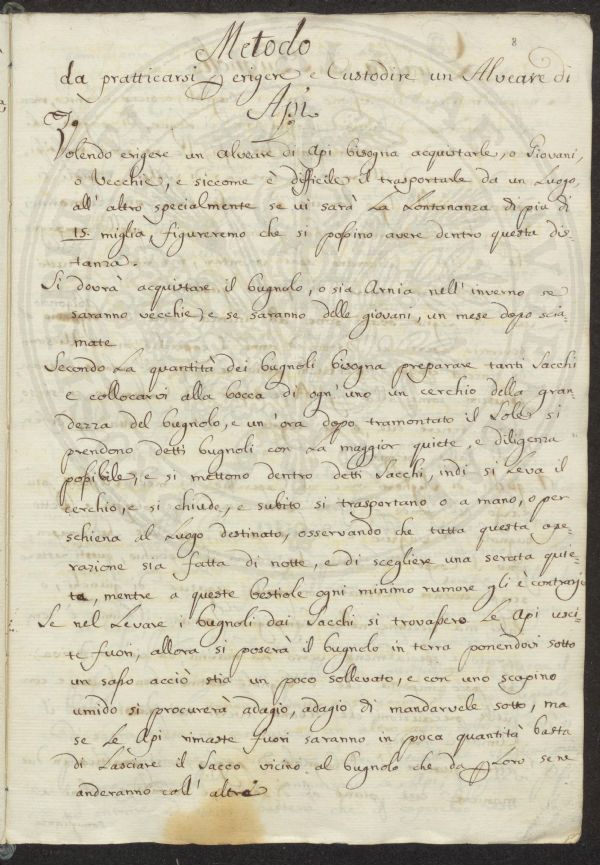 8
Metodo
da pratticarsi p erigere e Custodire un Alveare di
Api
Volendo erigere un alveare di Api bisogna acquistarle, o Giovani,
o Vecchie, e siccome è difficile il trasportarle da un Luogo,
all' altro specialmente se vi sarà La Lontananza di più di
15. miglia, figureremo che si possino avere dentro questa dis-
tanza.
Si dovrà acquistare il bugnolo, o sia Arnia nell' inverno se
saranno vecchie, e se saranno delle giovani, un mese dopo scia-
mate
Secondo La quantità dei bugnoli bisogna preparare tanti Sacchi
e collocarvi alla bocca di ogn' uno un cerchio della gran-
dezza del bugnolo, e un' ora dopo tramontato il Sole si
prendono detti bugnoli con La maggior quiete, e diligenza
possibile, e si mettono dentro detti Sacchi, indi si Leva il
cerchio, e si chiude, e subito si trasportano o a mano, o per
schiena al Luogo destinato, osservando che tutta questa ope-
razione sia fatta di notte, e di scegliere una serata quie-
ta, mentre a queste bestiole ogni minimo rumore gli è contrario
Se nel Levare i bugnoli dai Sacchi si trovassero Le Api usci-
te fuori, allora si poserà il bugnolo in terra ponendovi sotto
un sasso acciò stia un poco sollevato, e con uno scopino
umido si procurerà adagio, adagio di mandarvele sotto, ma
se Le Api rimaste fuori saranno in poca quantità basta
di Lasciare il Sacco vicino al bugnolo che da p Loro se ne
anderanno coll' altre